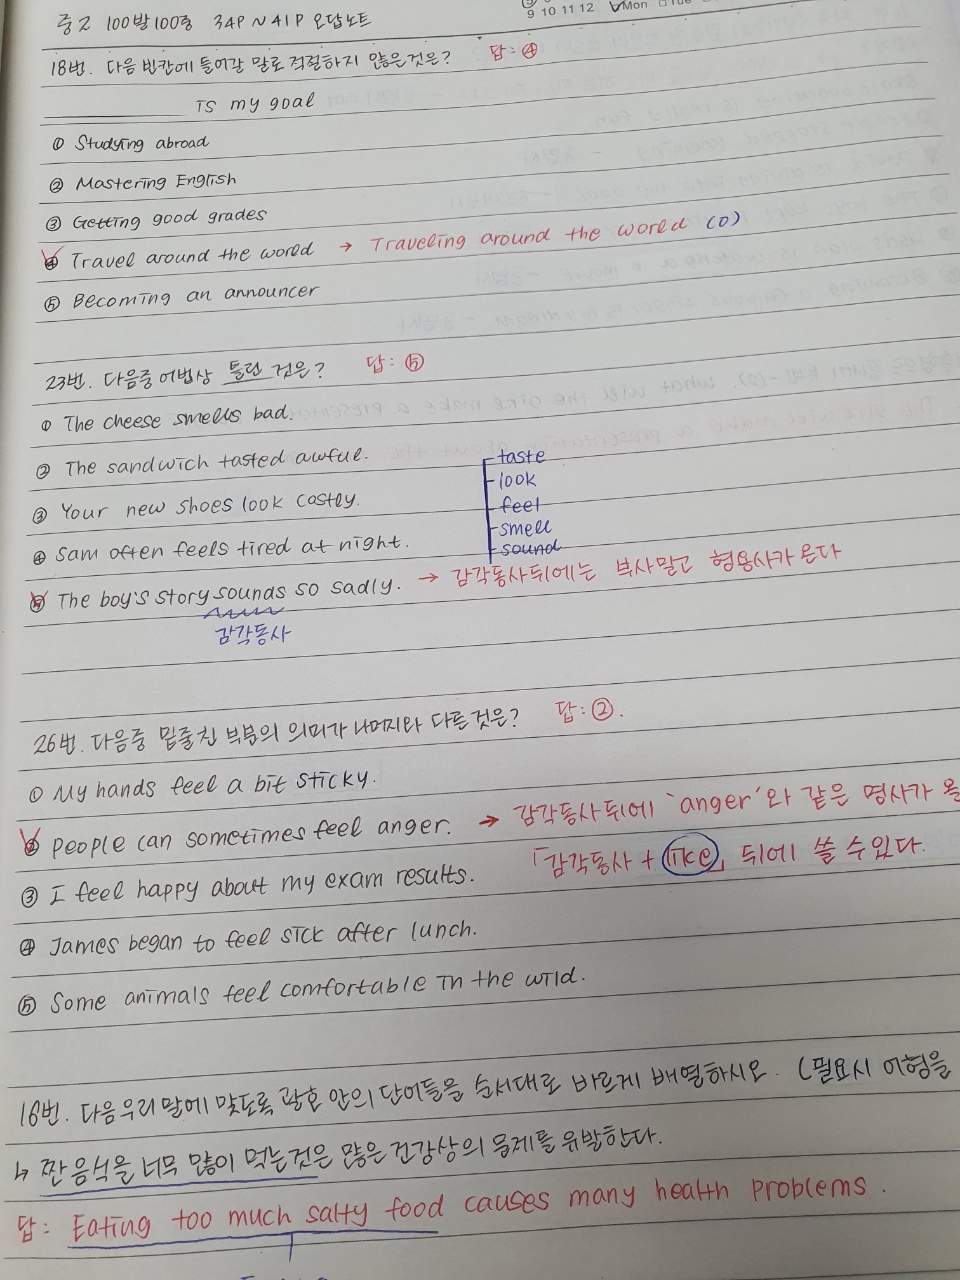 중2 100발100중 34P ~ 41P 오답노트
9 10 11 12 Mon Tue
18번. 다음 빈칸에 들어갈 말로 적절하지 않은것은? 답: ④
is my goal
① Studying abroad
② Mastering English
③ Getting good grades
④ Travel around the world → Traveling around the world (O)
⑤ Becoming an announcer
23번. 다음중 어법상 틀린 것은? 답: ⑤
① The cheese smells bad.
② The sandwich tasted awful.
③ Your new shoes look costly.
④ Sam often feels tired at night.
taste
look
feel
smell
sound
⑤ The boy's story sounds so sadly. → 감각동사뒤에는 부사말고 형용사가 온다
감각동사
26번. 다음중 밑줄친 부분의 의미가 나머지와 다른것은? 답: ②.
① My hands feel a bit sticky.
② people can sometimes feel anger. → 감각동사뒤에 'anger'와 같은 명사가 올
「감각동사 + like」 뒤에 쓸 수있다.
③ I feel happy about my exam results.
④ James began to feel sick after lunch.
⑤ Some animals feel comfortable in the wild.
16번. 다음우리말에 맞도록 괄호 안의 단어들을 순서대로 바르게 배열하시오. (필요시 어형을
↳ 짠 음식을 너무 많이 먹는것은 많은 건강상의 문제를 유발한다.
답: Eating too much salty food causes many health problems.